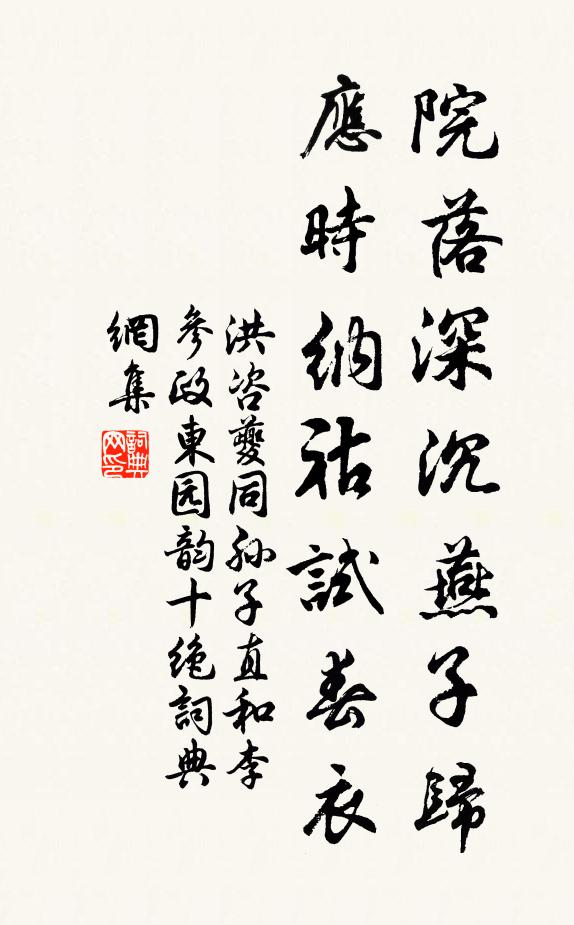 院落深沉燕子歸
應時納祜試春衣
洪咨夔同孙子直和李
參政東园韵十绝詞典
網集
詞典网印